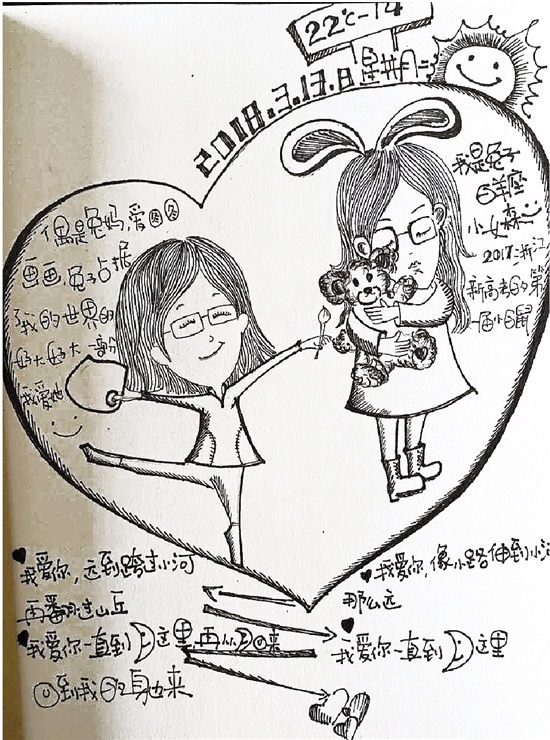 22℃-14
2018.3.13.8 星期二
我是兔子
白羊座
小女森
2017浙江
新高考的第
一届小白鼠
偶是兔妈,爱
画画,兔子占据
了我的世界的
好大好大一部份
我爱她
我爱你,远到跨过小河
再翻过山丘
我爱你一直到 这里,再从 回来
到我的身边来
我爱你,像小路伸到小河
那么远
我爱你一直到 这里